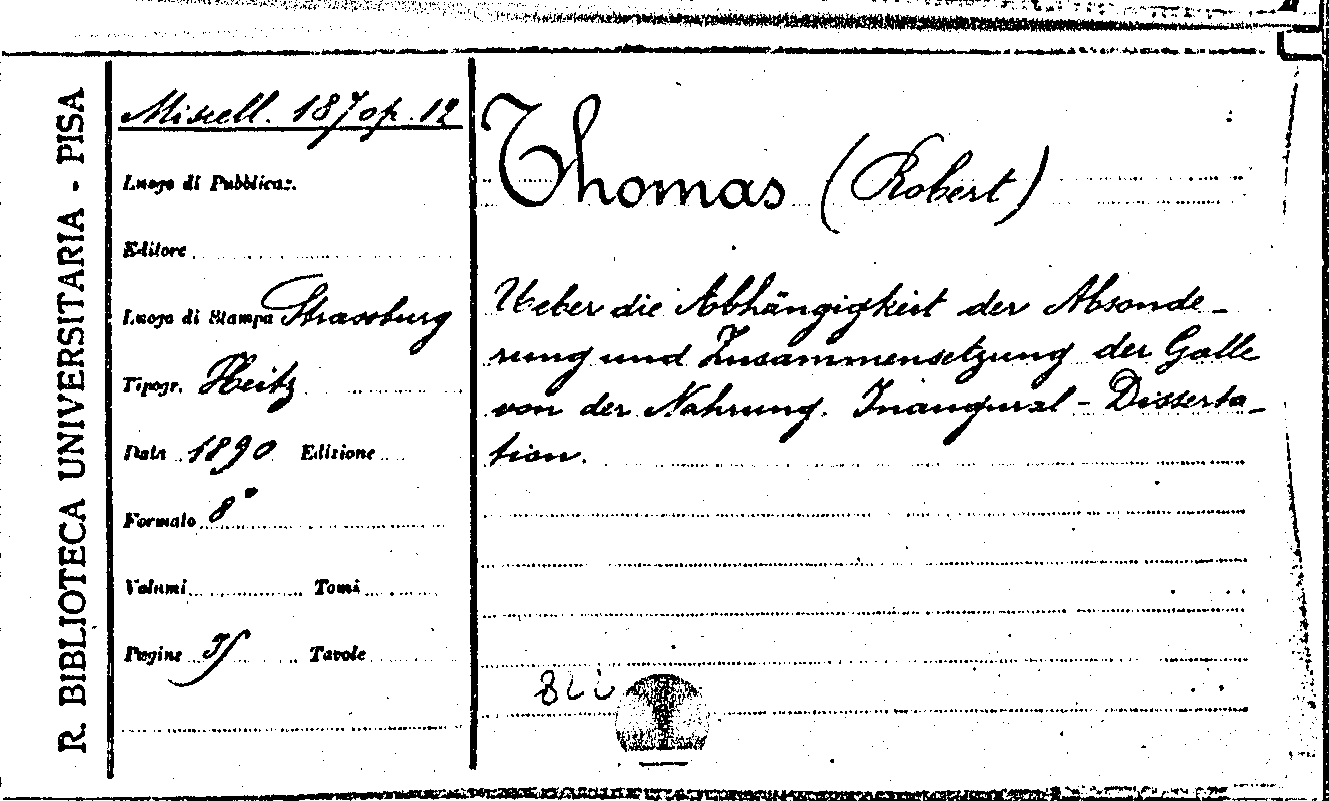 R. BIBLIOTECA UNIVERSITARIA - PISA
Miscell. 187 op. 12
Luogo di Pubblicaz.
Editore
Luogo di Stampa Strassburg
Tipogr. Heitz
Data 1890 Edizione
Formato 8°
Volumi Tomi
Pagine Tavole
Thomas (Robert)
Ueber die Abhängigkeit der Absonde-
rung und Zusammensetzung der Galle
von der Nahrung. Inaugural - Disserta-
tion.